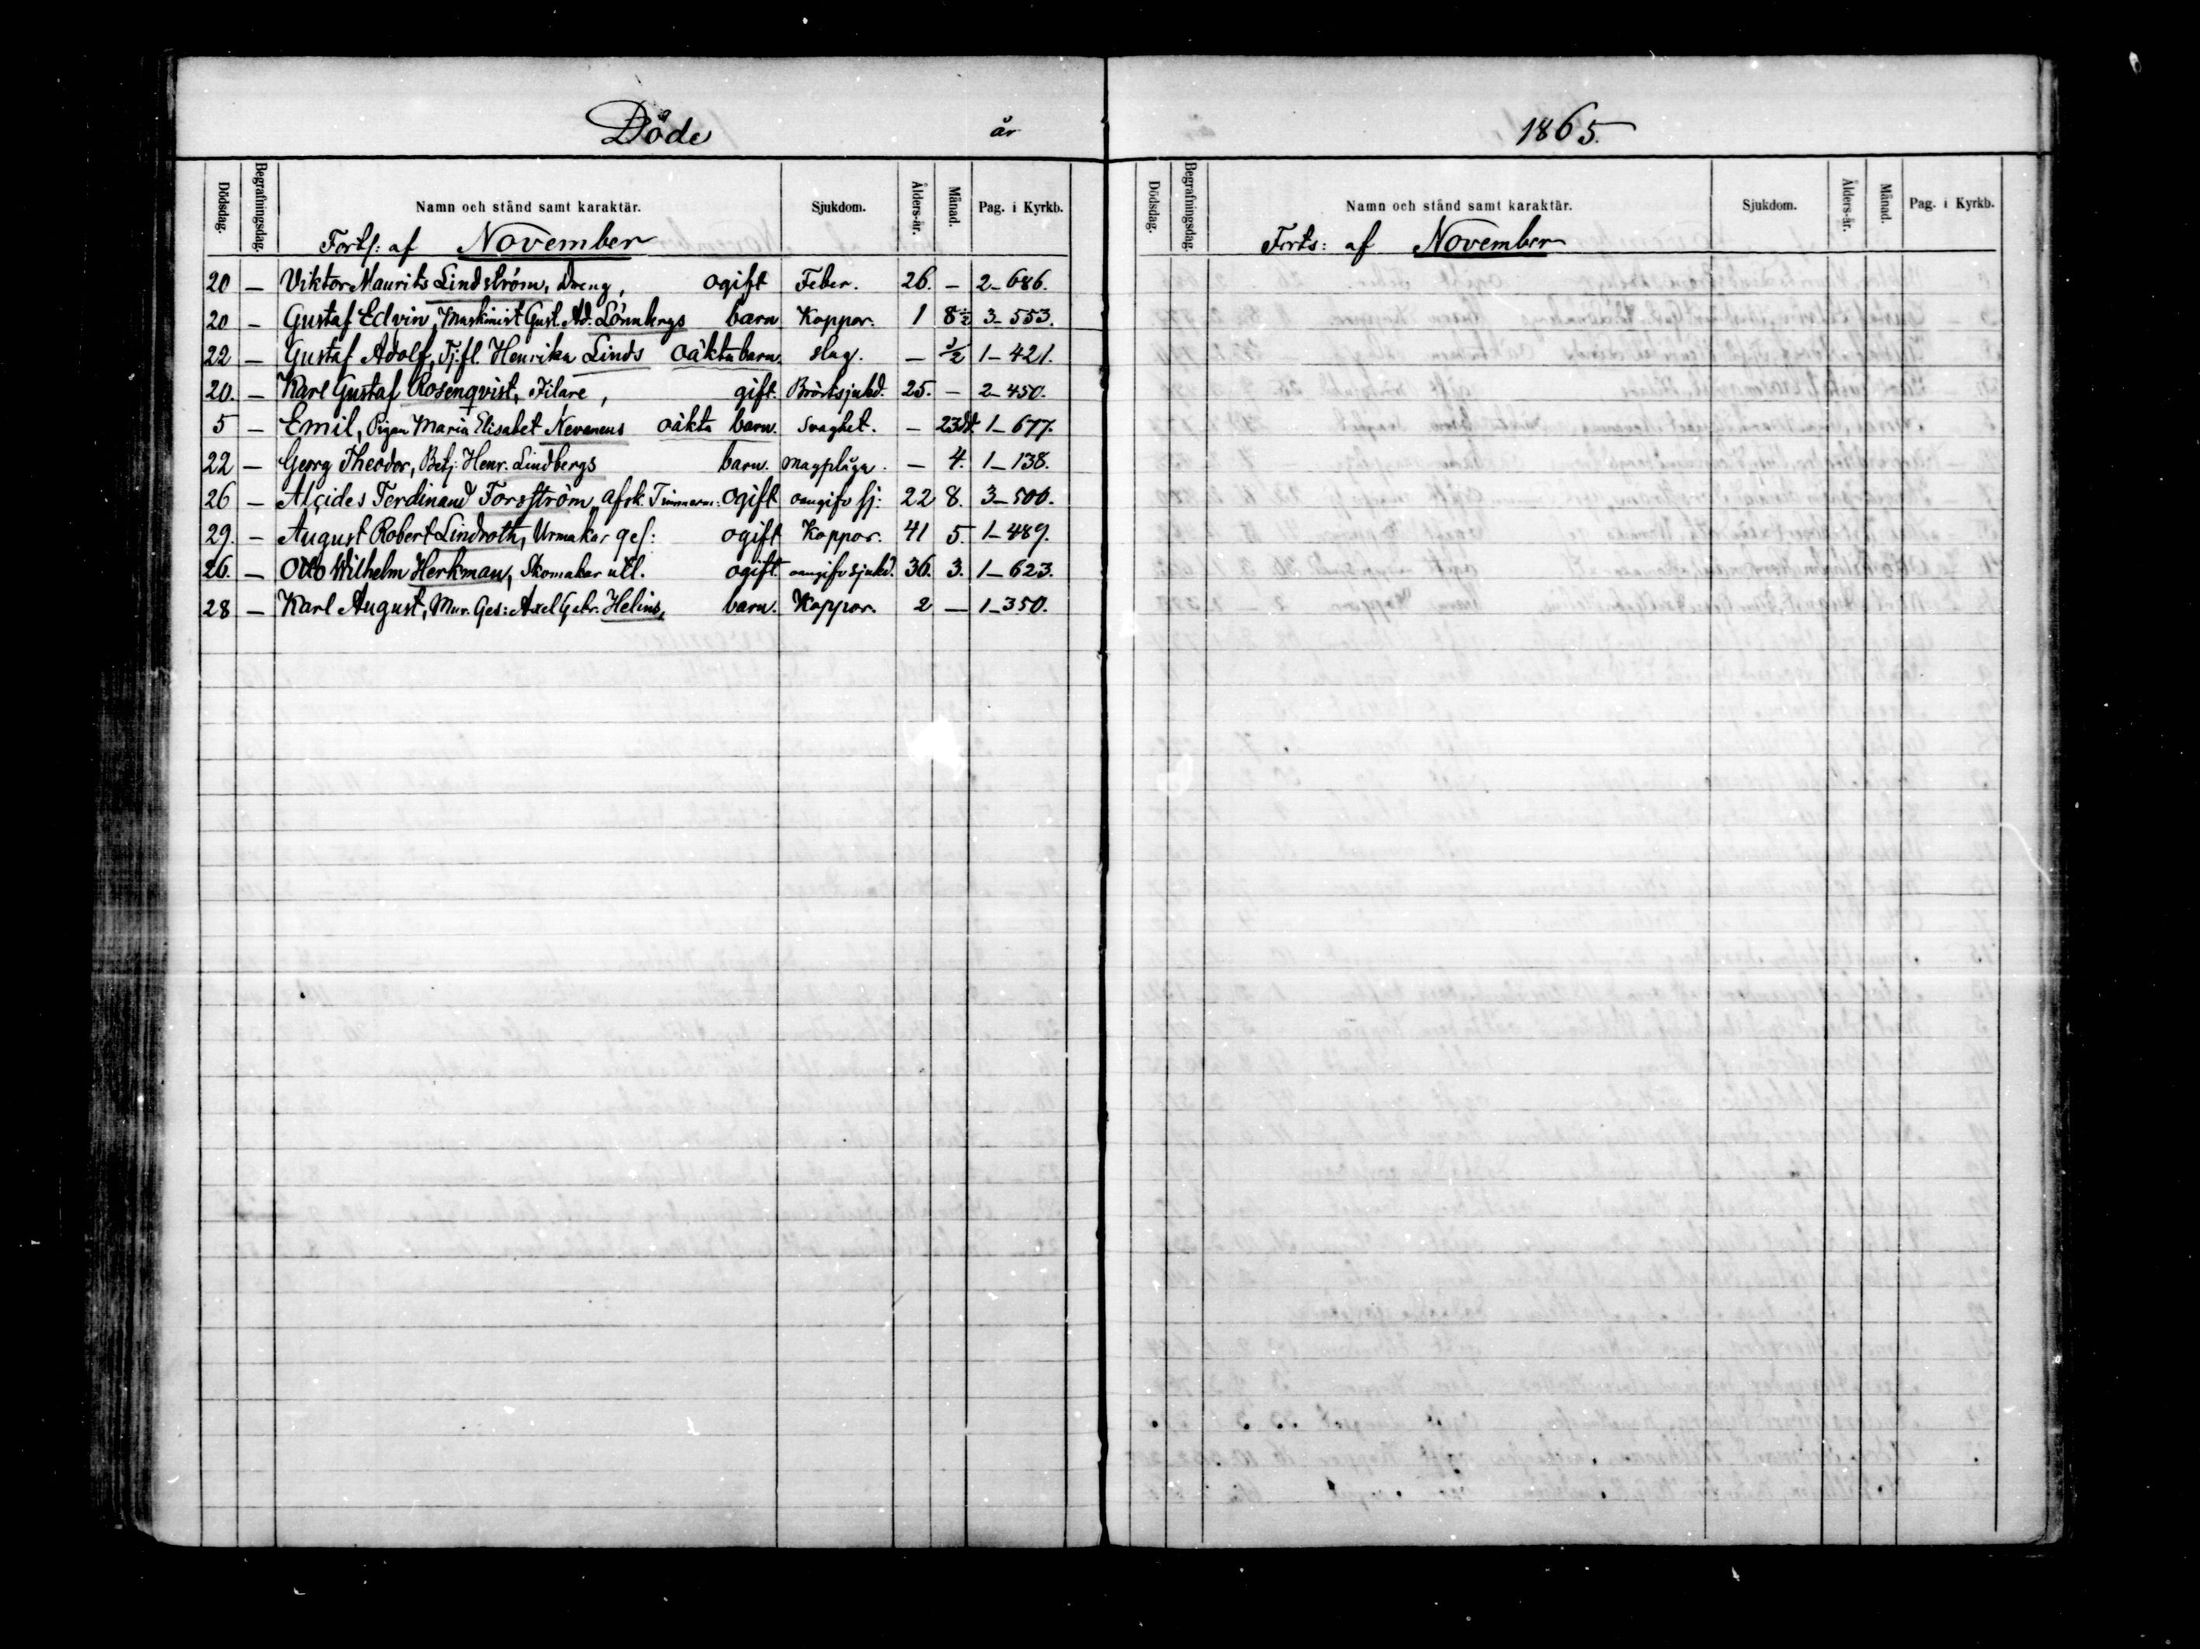 Döde år 1865.
Dödsdag. Begrafningsdag. Namn och stånd samt karaktär. Sjukdom. Ålders-år. Månad. Pag. i Kyrkb.
Forts: af November
20 — Viktor Maurits Lindström, Dreng, ogift Feber. 26. — 2-686.
20 — Gustaf Edvin, Maskinist Gust. Ad. Lönnbergs barn Koppor. 1 8½ 3-553.
22 — Gustaf Adolf, Tj.fl. Henrika Linds oäkta barn. slag. — ½ 1-421.
20. — Karl Gustaf Rosenqvist, Filare, gift. Bröstsjukd. 25. — 2-450.
5 — Emil, Pigan Maria Elisabet Nevanens oäkta barn. Svaghet. — 23 d. 1-677.
22 — Georg Theodor, Betj: Henr. Lindbergs barn. magplåga. — 4. 1-138.
26 — Alcides Ferdinand Forsström, afsk. Timmerm: ogift oangifv sj: 22 8. 3-506.
29. — August Robert Lindroth, Urmakar ges: ogift Koppor. 41 5. 1-489.
26. — Otto Wilhelm Herkman, Skomakar utl. ogift. oangifv sjukd. 36. 3. 1-623.
28 — Karl August, Mur. Ges: Axel Gabr. Helins, barn. Koppor. 2 — 1-350.
Dödsdag. Begrafningsdag. Namn och stånd samt karaktär. Sjukdom. Ålders-år. Månad. Pag. i Kyrkb.
Forts: af November